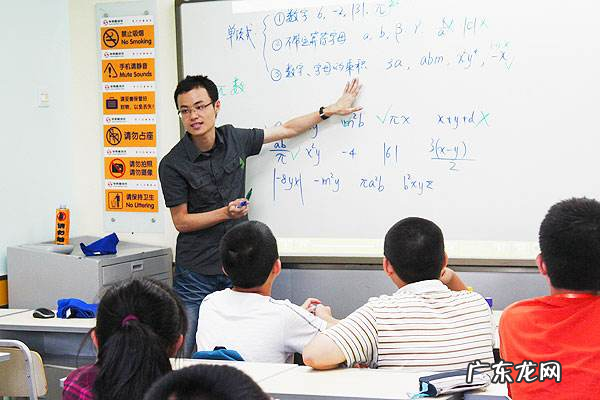 禁止吸烟
No Smoking
手机请静音
Mute Sounds
请勿占座
请勿拍照
请勿摄像
请保持卫生
No Littering
单项式
① 数字 6, -2, |3|, π
② 不带运算符字母 a, b, β, γ |c| ×
③ 数字、字母的乘积 3a, abm, x²y⁴
数
m²b ✓ πx x+y+d ×
ab/π ✓ x²y -4 |6| 3(x-y)/2
|-8yx| -m²y πa²b b²xyz
广东龙网